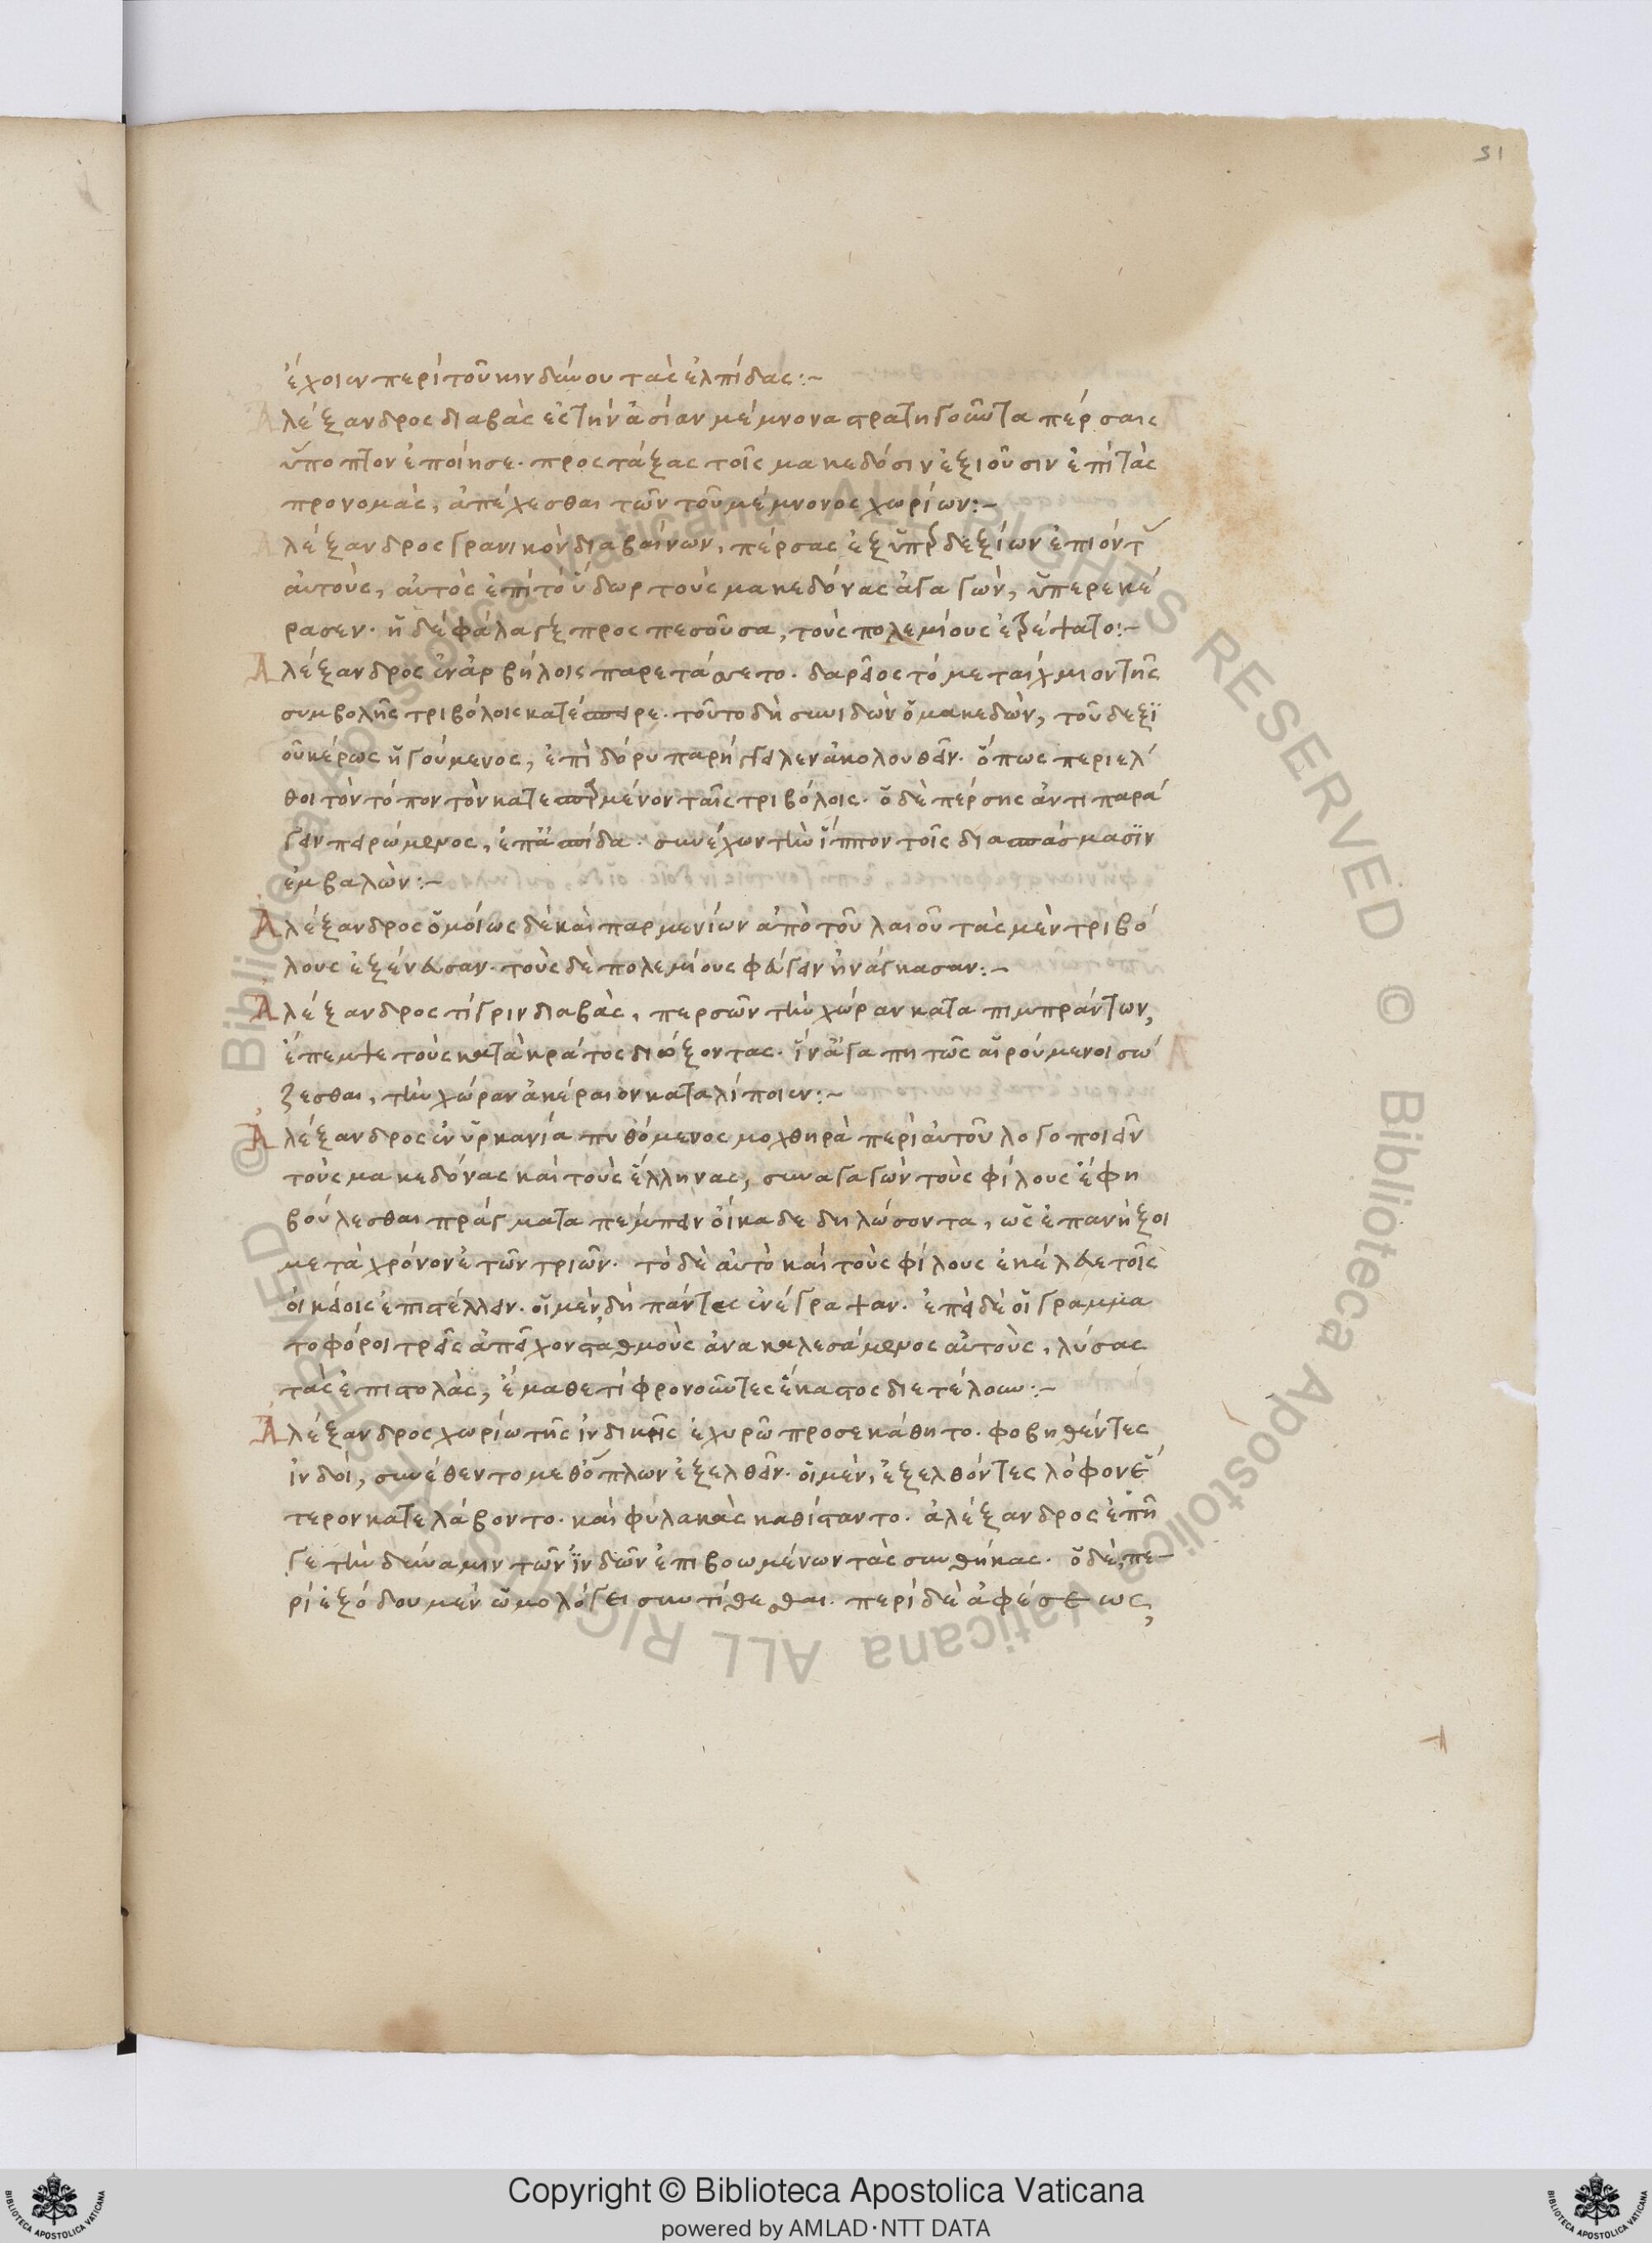 31
ἔχοιεν περὶ τοῦ κινδύνου τὰς ἐλπίδας:~
Ἀλέξανδρος διαβὰς ἐς τὴν ἀσίαν μέμνονα στρατηγοῦντα πέρσαις
ὕποπτον ἐποίησε· προστάξας τοῖς μακεδόσιν ἐξιοῦσιν ἐπὶ τὰς
προνομὰς, ἀπέχεσθαι τῶν τοῦ μέμνονος χωρίων:~
Ἀλέξανδρος γρανικὸν διαβαίνων, πέρσας ἐξ ὑπὲρ δεξίων ἐπιόντ
αὐτοὺς, αὐτὸς ἐπὶ τὸ ὕδωρ τοὺς μακεδόνας ἀγαγὼν, ὑπερεκέ
ρασεν· ἡ δὲ φάλαγξ προσπεσοῦσα, τοὺς πολεμίους ἐτρέψατο:~
Ἀλέξανδρος ἐν ἀρβήλοις παρετάσσετο· δαρεῖος τὸ μεταίχμιον τῆς
συμβολῆς τριβόλοις κατέσπειρε· τοῦτο δὴ συνιδὼν ὁ μακεδὼν, τοῦ δεξι
οῦ κέρως ἡγούμενος, ἐπὶ δόρυ παρήγγειλεν ἀκολουθεῖν· ὅπως περιέλ
θοι τὸν τόπον τὸν κατεσπαρμένον ταῖς τριβόλοις· ὁ δὲ πέρσης ἀντιπαρά
γειν πειρώμενος, ἐπ᾽ ἀσπίδα· συνέχων τὴν ἵππον τοῖς διασπάσμασιν
ἐμβαλὼν:~
Ἀλέξανδρος ὁμοίως δὲ καὶ παρμενίων ἀπὸ τοῦ λαιοῦ τὰς μὲν τριβό
λους ἐξένευσαν· τοὺς δὲ πολεμίους φεύγειν ἠνάγκασαν:~
Ἀλέξανδρος τίγριν διαβὰς, περσῶν τὴν χώραν καταπιμπράντων,
ἔπεμψε τοὺς κατὰ κράτος διώξοντας· ἵν᾽ ἀγαπητῶς αἱρούμενοι σώ
ζεσθαι, τὴν χώραν ἀκέραιον καταλίποιεν:~
Ἀλέξανδρος ἐν ὑρκανία πυθόμενος μοχθηρὰ περὶ αὐτοῦ λογοποιεῖν
τοὺς μακεδόνας καὶ τοὺς ἕλληνας, συναγαγὼν τοὺς φίλους ἔφη
βούλεσθαι πράγματα πέμπειν οἴκαδε δηλώσοντα, ὡς ἐπανήξοι
μετὰ χρόνον ἐτῶν τριῶν· τὸ δὲ αὐτὸ καὶ τοὺς φίλους ἐκέλευε τοῖς
οἰκείοις ἐπιστέλλειν· οἱ μὲν δὴ πάντες ἐνέγραψαν· ἐπεὶ δὲ οἱ γραμμα
τοφόροι τρεῖς ἀπεῖχον σταθμοὺς ἀνακαλεσάμενος αὐτοὺς, λύσας
τὰς ἐπιστολὰς, ἔμαθε τί φρονοῦντες ἕκαστος διετέλουν:~
Ἀλέξανδρος χωρίω τῆς ἰνδικῆς ἐχυρῶ προσεκάθητο· φοβηθέντες
ἰνδοὶ, συνέθεντο μεθ᾽ ὅπλων ἐξελθεῖν· οἱ μὲν, ἐξελθόντες λόφον ἕ
τερον κατελάβοντο· καὶ φύλακας καθίσταντο· ἀλέξανδρος ἐπῆ
γε τὴν δύναμιν τῶν ἰνδῶν ἐπιβοωμένων τὰς συνθήκας· ὁ δὲ, πε-
ρὶ ἐξόδου μὲν ὡμολόγει συντίθεσθαι· περὶ δὲ ἀφέσεως,
© Biblioteca Apostolica Vaticana ALL RIGHTS RESERVED © Biblioteca Apostolica Vaticana ALL RIGHTS RESERVED
Copyright © Biblioteca Apostolica Vaticana
powered by AMLAD·NTT DATA
BIBLIOTECA APOSTOLICA VATICANA
BIBLIOTECA APOSTOLICA VATICANA